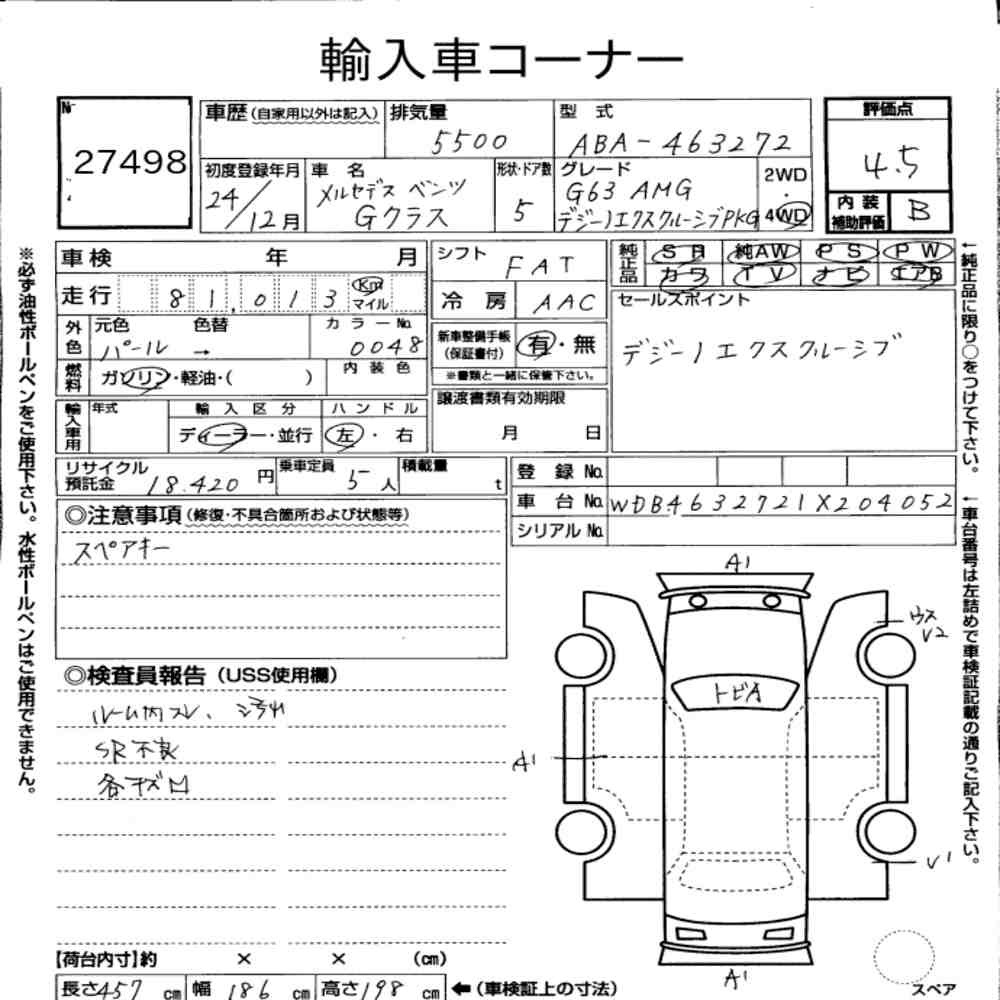 輸入車コーナー
No.
27498
車歴(自家用以外は記入)
排気量
5500
型 式
ABA-463272
評価点
4.5
初度登録年月
24/12月
車 名
メルセデス ベンツ
Gクラス
形状・ドア数
5
グレード
G63 AMG
デジーノエクスクルーシブPKG
2WD
・
4WD
内 装
補助評価
B
車検 年 月
走行 81,013 Km マイル
シフト
FAT
冷 房 AAC
純正品
SR 純AW PS PW
カワ TV ナビ エアB
外色
元色 色替
パール →
カラーNo.
0048
新車整備手帳
(保証書付)
有・無
※書類と一緒に保管下さい。
セールスポイント
デジーノエクスクルーシブ
燃料
ガソリン・軽油・( )
内 装 色
譲渡書類有効期限
月 日
輸入車用
年式
輸 入 区 分
ディーラー・並行
ハ ン ド ル
左・右
リサイクル
預託金
18.420 円
乗車定員
5 人
積載量
t
登 録 No.
車 台 No. WDB4632721X204052
シリアル No.
◎注意事項(修復・不具合箇所および状態等)
スペアキー
◎検査員報告(USS使用欄)
ルーム内スレ、シ汚れ
SR不良
各キズ凹
A1
ウス
V2
トビA
A1
V1
A1
スペア
【荷台内寸】約 × × (cm)
長さ457 cm 幅 186 cm 高さ198 cm ←(車検証上の寸法)
※必ず油性ボールペンをご使用下さい。水性ボールペンはご使用できません。
←純正品に限り○をつけて下さい。
←車台番号は左詰めで車検証記載の通りご記入下さい。